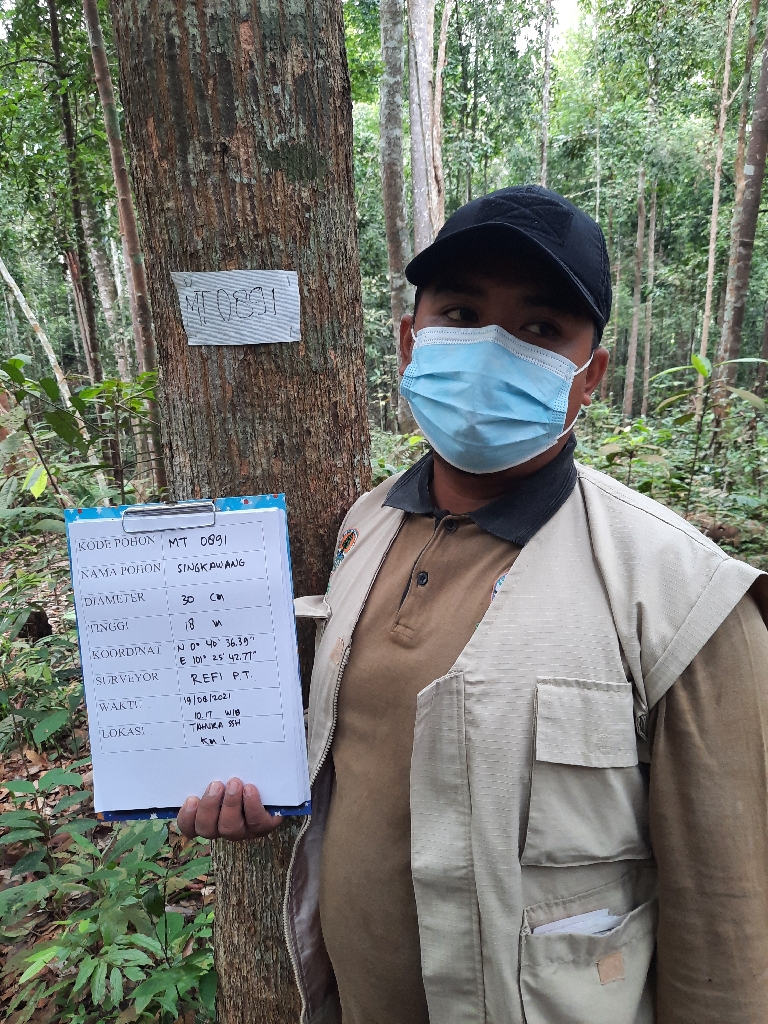 MT 0891
KODE POHON MT 0891
NAMA POHON SINGKAWANG
DIAMETER 30 cm
TINGGI 18 m
KOORDINAT N 0° 40' 36.39"
E 101° 25' 42.77"
SURVEYOR REFI P.T.
WAKTU 19/08/2021
10.17 WIB
LOKASI TAHURA SSH
KM 1